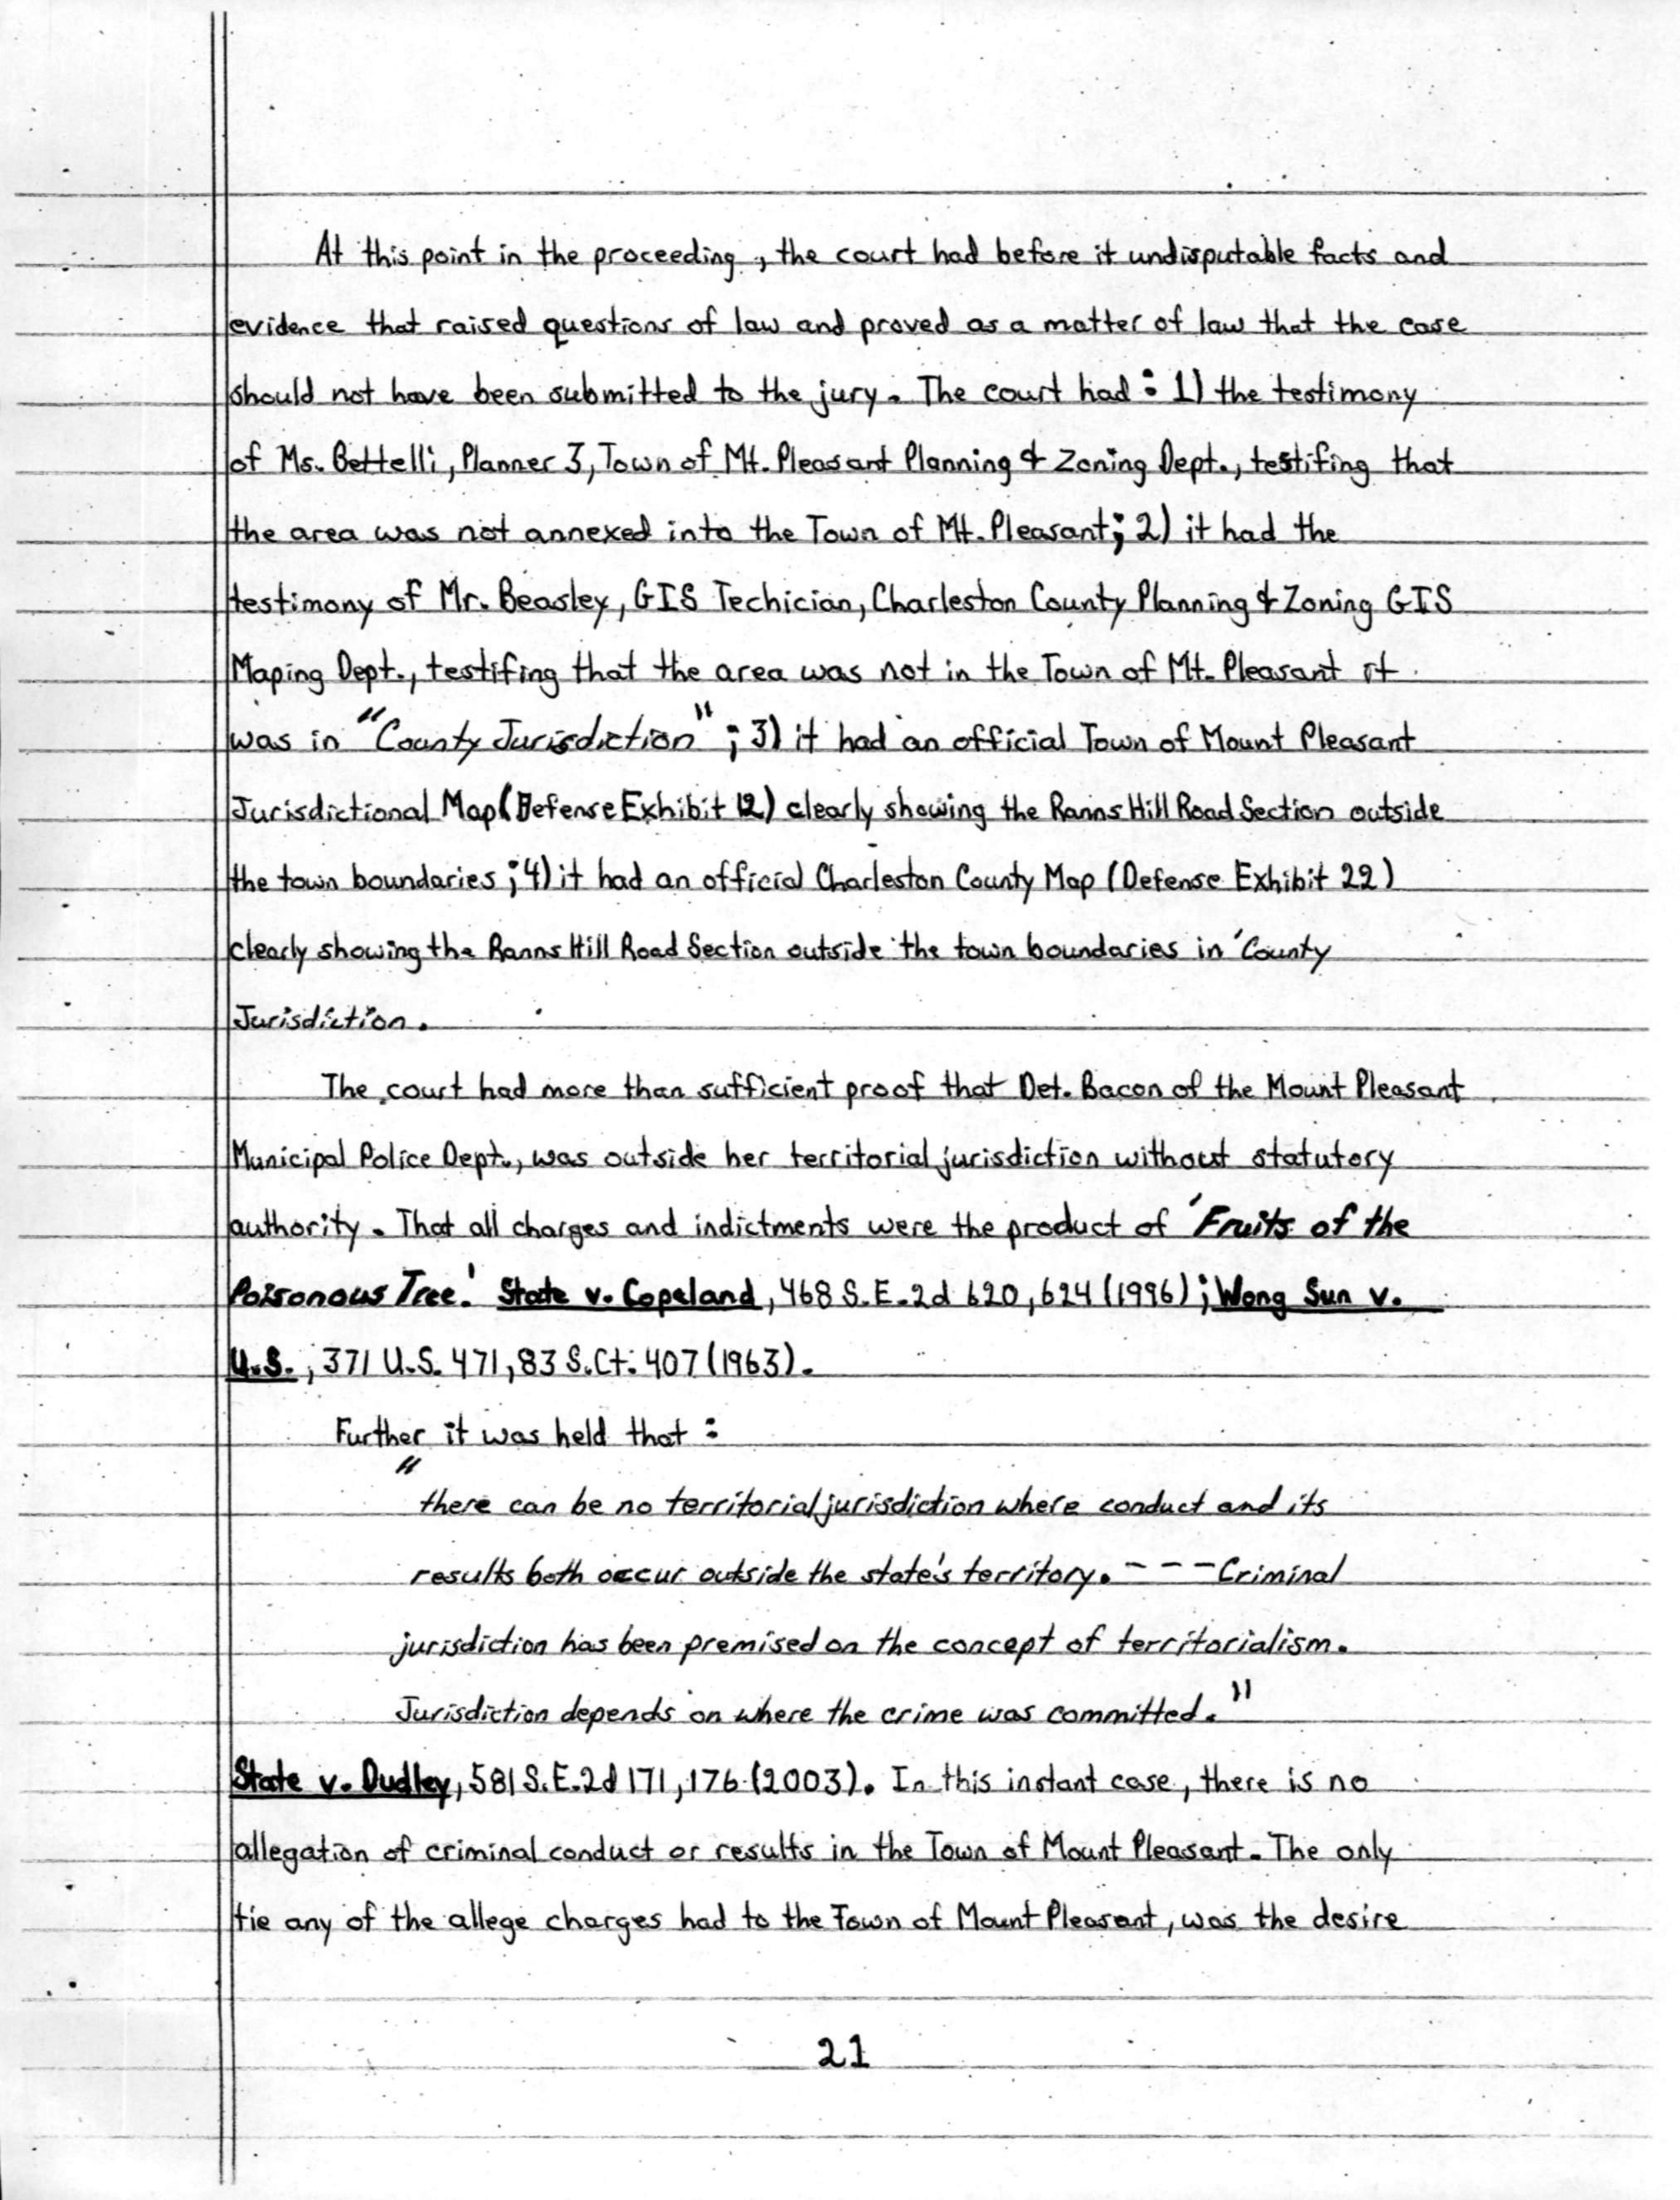 At this point in the proceeding, the court had before it undisputable facts and
evidence that raised questions of law and proved as a matter of law that the case
should not have been submitted to the jury. The court had: 1) the testimony
of Ms. Bettelli, Planner 3, Town of Mt. Pleasant Planning & Zoning Dept., testifing that
the area was not annexed into the Town of Mt. Pleasant; 2) it had the
testimony of Mr. Beasley, GIS Techician, Charleston County Planning & Zoning GIS
Maping Dept., testifing that the area was not in the Town of Mt. Pleasant it
was in "County Jurisdiction"; 3) it had an official Town of Mount Pleasant
Jurisdictional Map (Defense Exhibit 12) clearly showing the Ranns Hill Road Section outside
the town boundaries; 4) it had an official Charleston County Map (Defense Exhibit 22)
clearly showing the Ranns Hill Road Section outside the town boundaries in 'County
Jurisdiction.
The court had more than sufficient proof that Det. Bacon of the Mount Pleasant
Municipal Police Dept., was outside her territorial jurisdiction without statutory
authority. That all charges and indictments were the product of 'Fruits of the
Poisonous Tree.' State v. Copeland, 468 S.E.2d 620, 624 (1996); Wong Sun v.
U.S., 371 U.S. 471, 83 S.Ct. 407 (1963).
Further it was held that:
"
there can be no territorial jurisdiction where conduct and its
results both occur outside the state's territory. --- Criminal
jurisdiction has been premised on the concept of territorialism.
Jurisdiction depends on where the crime was committed."
State v. Dudley, 581 S.E.2d 171, 176 (2003). In this instant case, there is no
allegation of criminal conduct or results in the Town of Mount Pleasant. The only
tie any of the allege charges had to the Town of Mount Pleasant, was the desire
21